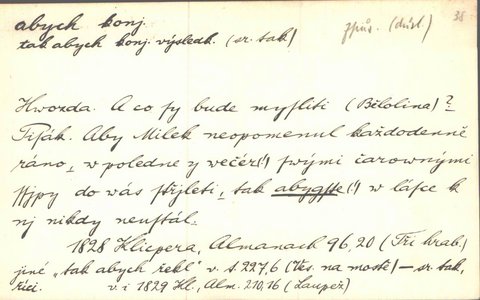 abych konj. způs. (důsl.) 38
tak abych konj. výsledk. (sr. tak)
Hwozda. A co sy bude mysliti (Bělolina)?
Pisák. Aby Milek neopomenul každodenně
ráno, w poledne y wečer(!) swými čarownými
sspjpy do wás střjleti, tak abygste(!) w lásce k
nj nikdy neustál.
1828 Klicpera, Almanach 96, 20 (Tři hrab.)
jiné „tak abych řekl" v. t. 227,6 (Ves. na mostě) — sr. tak,
řéci. v. i 1829 Kl., Alm. 210,16 (Laupež)